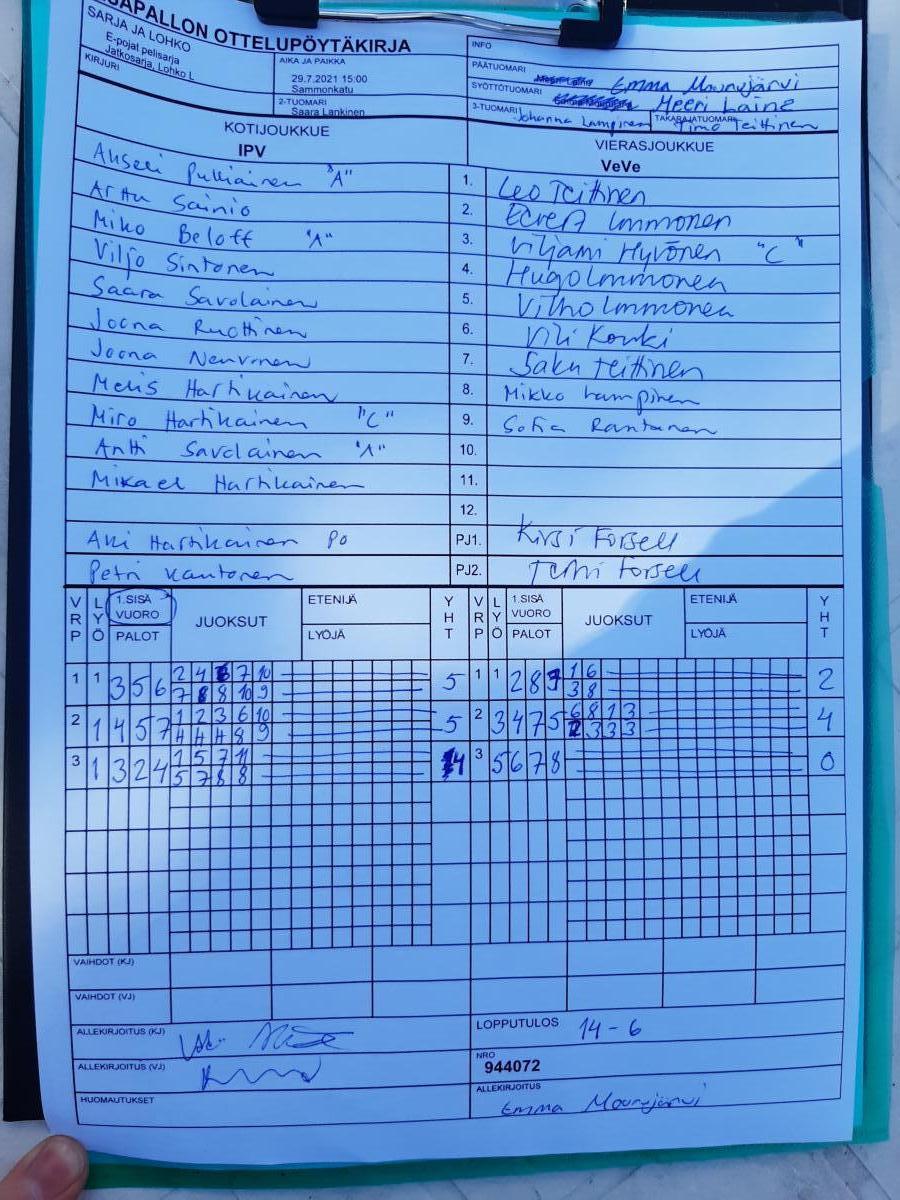 SAPALLON OTTELUPÖYTÄKIRJA
SARJA JA LOHKO
E-pojat pelisarja
Jatkosarja, Lohko L
KIRJURI
AIKA JA PAIKKA
29.7.2021 15:00
Sammonkatu
2-TUOMARI
Saara Lankinen
INFO
PÄÄTUOMARI Emma Mourujärvi
SYÖTTÖTUOMARI Meeri Laine
3-TUOMARI Johanna Lampinen TAKARAJATUOMARI Timo Teittinen
KOTIJOUKKUE
IPV
VIERASJOUKKUE
VeVe
Anseli Pulliainen "A" 1. Leo Teittinen
Arttu Sainio 2. Eevert Immonen
Miko Beloff "A" 3. Viljami Hyvönen "C"
Viljo Sintonen 4. Hugo Immonen
Saara Savolainen 5. Vilho Immonen
Joona Ruottinen 6. Vili Kouki
Joona Neuvonen 7. Saku Teittinen
Melis Hartikainen 8. Mikko Lampinen
Miro Hartikainen "C" 9. Sofia Rantanen
Antti Savolainen "A" 10.
Mikael Hartikainen 11.
12.
Aki Hartikainen PO PJ1. Kirsi Forsell
Petri Kantonen PJ2. Terhi Forsell
VRP LYÖ 1.SISÄ VUORO PALOT JUOKSUT ETENIJÄ LYÖJÄ YHT VRP LYÖ 1.SISÄ VUORO PALOT JUOKSUT ETENIJÄ LYÖJÄ YHT
1 1 3 5 6 2 4 7 10 5 1 1 2 8 9 1 6 2
7 8 8 10 9 3 8
2 1 4 5 7 1 2 3 6 10 5 2 3 4 7 5 6 8 1 3 4
4 4 4 8 9 2 3 3 3
3 1 3 2 4 1 5 7 11 4 3 5 6 7 8 0
5 7 8 8
VAIHDOT (KJ)
VAIHDOT (VJ)
ALLEKIRJOITUS (KJ)
ALLEKIRJOITUS (VJ)
HUOMAUTUKSET
LOPPUTULOS 14-6
NRO
944072
ALLEKIRJOITUS
Emma Mourujärvi